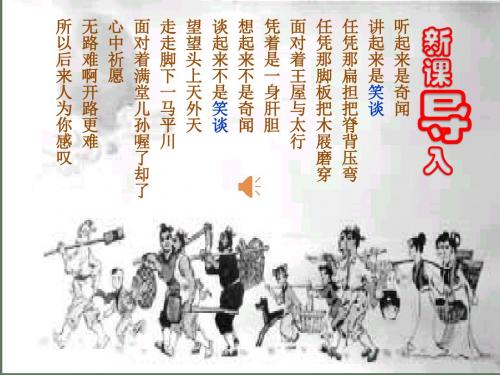 新课导入
听起来是奇闻
讲起来是笑谈
任凭那扁担把脊背压弯
任凭那脚板把木屐磨穿
面对着王屋与太行
凭着是一身肝胆
想起来不是奇闻
谈起来不是笑谈
望望头上天外天
走走脚下一马平川
面对着满堂儿孙喔了却了
心中祈愿
无路难啊开路更难
所以后来人为你感叹